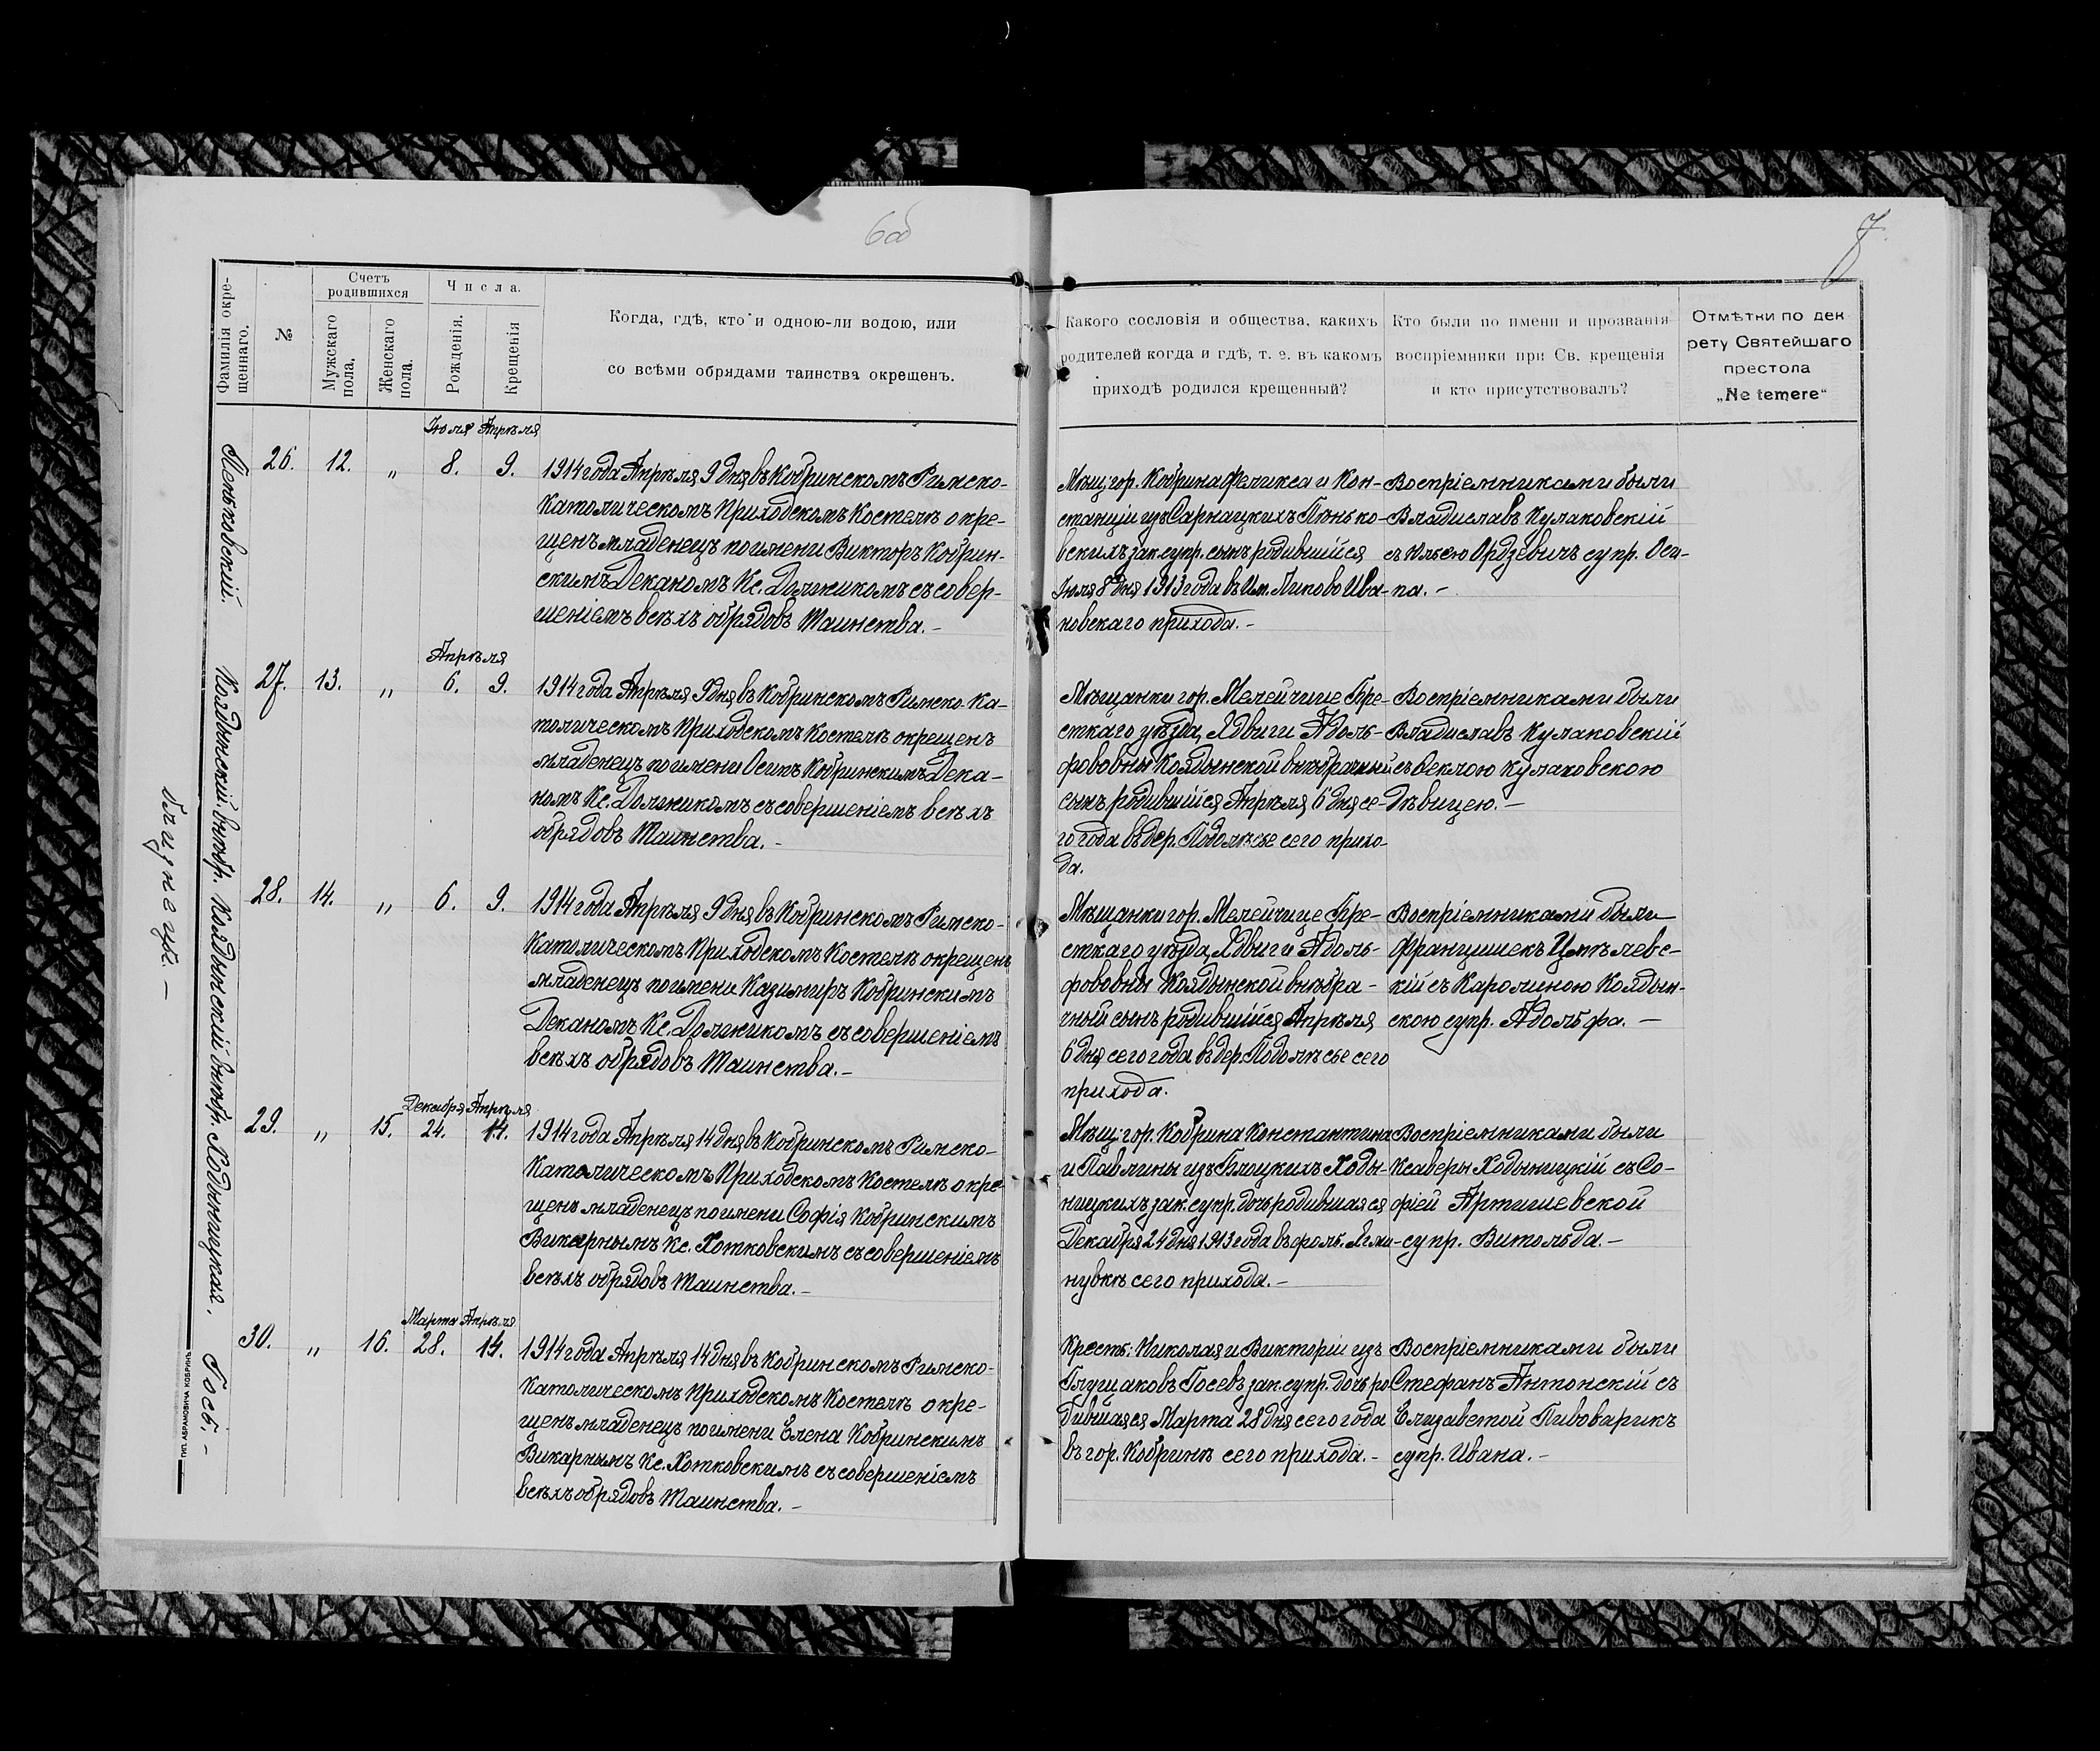 6об
7.
Фамилія окре-
щеннаго.
№
Счетъ
родившихся
Мужскаго
пола.
Женскаго
пола.
Числа.
Рожденія.
Крещенія
Когда, гдѣ, кто и одною-ли водою, или
со всѣми обрядами таинства окрещенъ.
Какого сословія и общества, какихъ
родителей когда и гдѣ, т. е. въ какомъ
приходѣ родился крещенный?
Кто были по имени и прозванія
воспріемники при Св. крещенія
и кто присутствовалъ?
Отмѣтки по дек
рету Святейшаго
престола
„Ne temere“
Пеньковскій.
Іюля Апрѣля
26. 12. „ 8. 9.
1914 года Апрѣля 9 дня въ Кобринскомъ Римско-
Католическомъ Приходскомъ Костелѣ окре-
щенъ младенецъ по имени Викторъ Кобрин-
скимъ Деканомъ Кс. Должикомъ съ совер-
шеніемъ всѣхъ обрядовъ Таинства.-
Мѣщ. гор. Кобрина Феликса и Кон-
станціи изъ Сарнацкихъ Пѣнько-
вскихъ зак. супр. сынъ родившійся
Іюля 8 дня 1913 года въ Им. Липово Ива-
новскаго прихода.-
Воспріемниками были
Владиславъ Кулаковскій
съ Юліею Ордзевичъ супр. Оси-
па.-
Коядынскій внѣбр.
Апрѣля
27. 13. „ 6. 9.
1914 года Апрѣля 9 дня въ Кобринскомъ Римско-Ка-
толическомъ Приходскомъ Костелѣ окрещенъ
младенецъ по имени Осипъ Кобринскимъ Дека-
номъ Кс. Должикомъ съ совершеніемъ всѣхъ
обрядовъ Таинства.-
Мѣщанки гор. Мелейчице Бре-
сткаго уѣзда, Ядвиги Адоль-
фововны Коядынской внѣбрачный
сынъ родившійся Апрѣля 6 дня се-
го года въ дер. Подолѣсье сего прихо-
да.
Воспріемниками были
Владиславъ Кулаковскій
съ Феклою Кулаковскою
Дѣвицею.-
Коядынскій внѣбр.
близнецы.-
28. 14. „ 6. 9.
1914 года Апрѣля 9 дня въ Кобринскомъ Римско-
Католическомъ Приходскомъ Костелѣ окрещенъ
младенецъ по имени Казимиръ Кобринскимъ
Деканомъ Кс. Должикомъ съ совершеніемъ
всѣхъ обрядовъ Таинства.-
Мѣщанки гор. Мелейчице Бре-
сткаго уѣзда, Ядвиги Адоль-
фововны Коядынской внѣбра-
чный сынъ родившійся Апрѣля
6 дня сего года въ дер. Подолѣсье сего
прихода.
Воспріемниками были
Францишекъ Цмѣлевс-
кій съ Каролиною Коядын-
скою супр. Адольфа.-
Ходыницкая.
Декабря Апрѣля
29. „ 15. 24. 14.
1914 года Апрѣля 14 дня въ Кобринскомъ Римско-
Католическомъ Приходскомъ Костелѣ окре-
щенъ младенецъ по имени Софія Кобринскимъ
Викарнымъ Кс. Хотковскимъ съ совершеніемъ
всѣхъ обрядовъ Таинства.-
Мѣщ. гор. Кобрина Константина
и Павлины изъ Бѣлуцкихъ Ходы-
ницкихъ зак. супр. дочь родившаяся
Декабря 24 дня 1913 года въ фольв. Ягми-
нувкѣ сего прихода.-
Воспріемниками были
Ксаверы Ходыницкій съ Со-
фіей Артишевской
супр. Витольда.-
Гось.-
Марта Апрѣля
30. „ 16. 28. 14.
1914 года Апрѣля 14 дня въ Кобринскомъ Римско-
Католическомъ Приходскомъ Костелѣ окре-
щенъ младенецъ по имени Елена Кобринскимъ
Викарнымъ Кс. Хотковскимъ съ совершеніемъ
всѣхъ обрядовъ Таинства.-
Кресть: Николая и Викторіи изъ
Глущаковъ Госевъ зак. супр. дочь ро-
дившаяся Марта 28 дня сего года
въ гор. Кобринѣ сего прихода.-
Воспріемниками были
Стефанъ Антонскій съ
Елизаветой Пивоварикъ
супр. Ивана.-
ТИП. АБРАМОВИЧА КОБРИНЪ